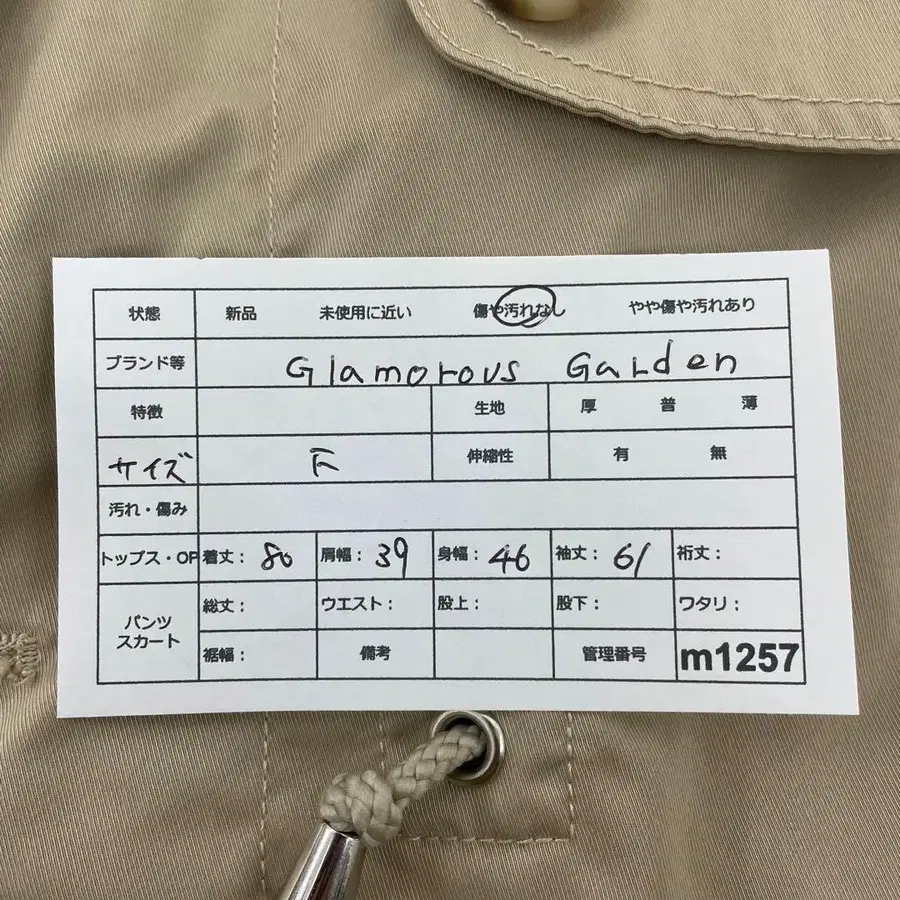 状態 新品 未使用に近い 傷や汚れなし やや傷や汚れあり
ブランド等 Glamorous Garden
特徴 生地 厚 普 薄
サイズ F 伸縮性 有 無
汚れ・傷み
トップス・OP 着丈： 80 肩幅： 39 身幅： 46 袖丈： 61 裄丈：
パンツ スカート 総丈： ウエスト： 股上： 股下： ワタリ：
裾幅： 備考 管理番号 m1257